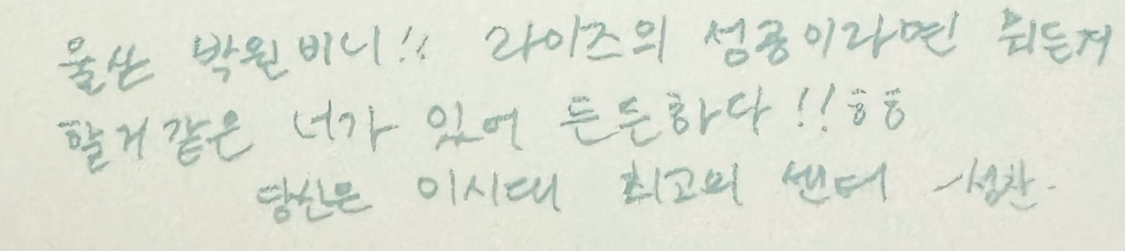 울산 박원비니!! 라이즈의 성공이라면 뭐든지
할거 같은 너가 있어 든든하다!! ㅎㅎ
당신은 이시대 최고의 센터 -성찬-